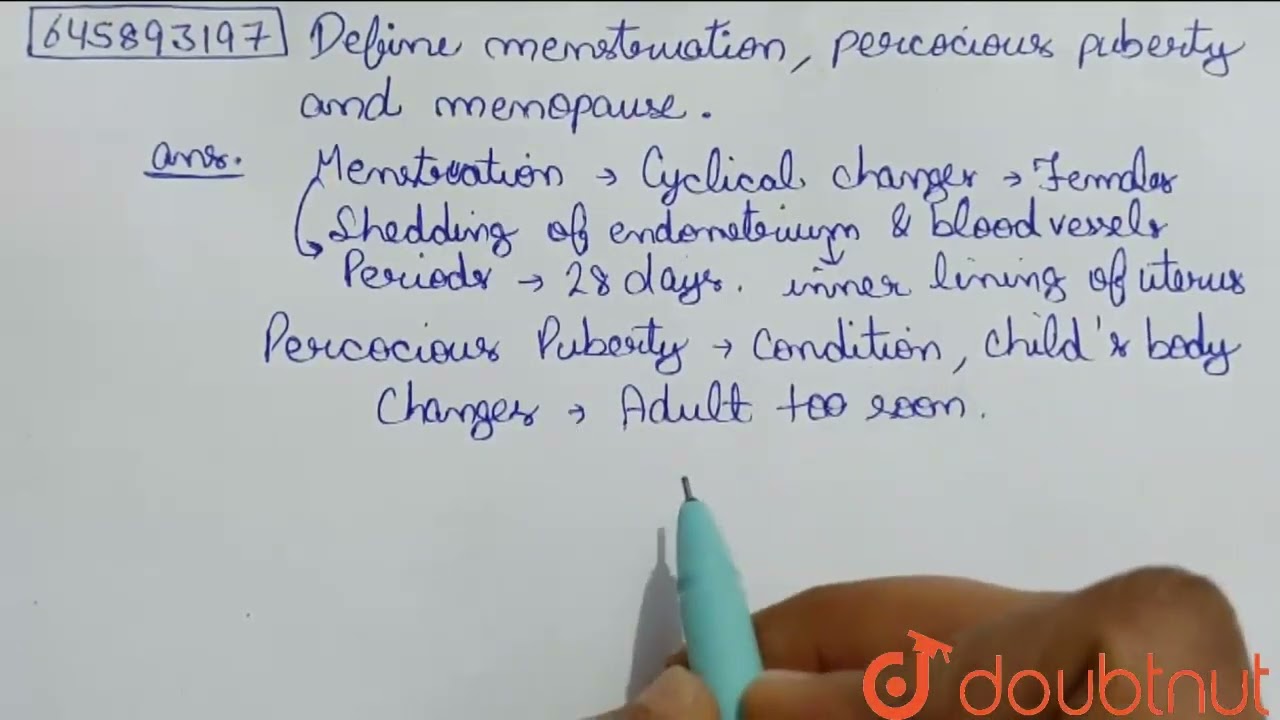 645893197 Define menstruation, percocious puberty
and menopause.
ans. Menstruation → Cyclical changes → Females
Shedding of endometrium & blood vessels
Periods → 28 days. inner lining of uterus
Percocious Puberty → Condition, child's body
Changes → Adult too soon.
doubtnut